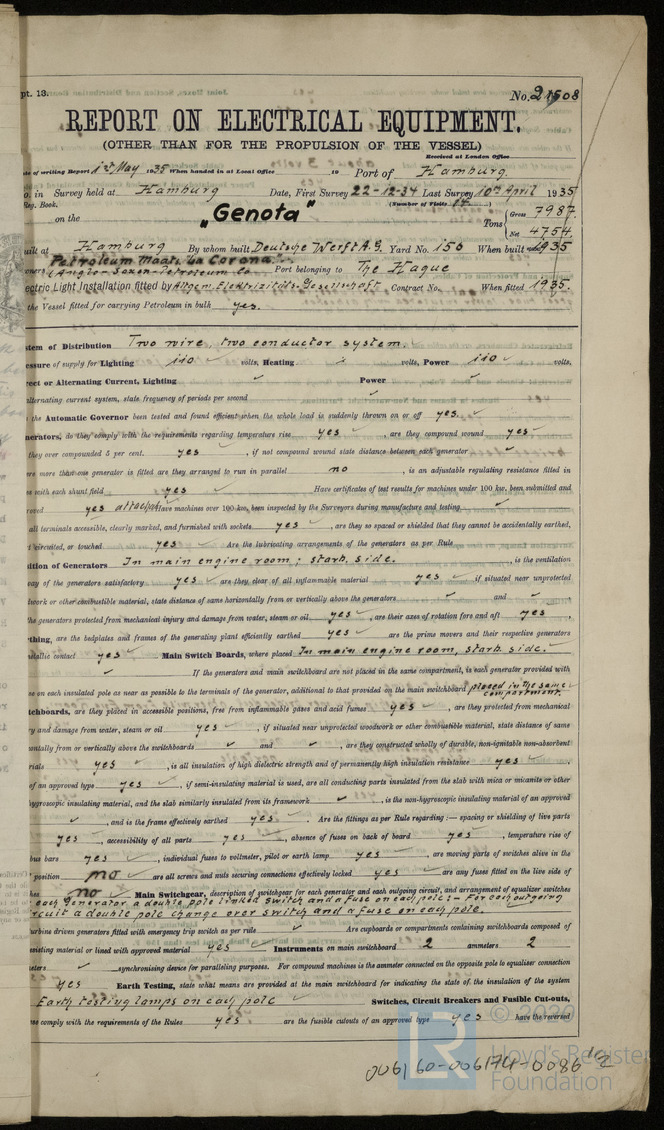 pt. 13.
No. 21508
REPORT ON ELECTRICAL EQUIPMENT.
(OTHER THAN FOR THE PROPULSION OF THE VESSEL)
Received at London Office
te of writing Report 1st May 1935 When handed in at Local Office 19 Port of Hamburg.
o. in Survey held at Hamburg Date, First Survey 22-12-34 Last Survey 10th April 1935
Reg. Book. (Number of Visits 14
on the "Genota" Tons Gross 7987
Net 4754
uilt at Hamburg By whom built Deutsche Werft A.G. Yard No. 150 When built 1935
Petroleum Maats. La Corona
wners (Anglo-Saxon-Petroleum Co Port belonging to The Hague
ectric Light Installation fitted by Allgem. Elektrizitäts-Gesellschaft Contract No. When fitted 1935.
the Vessel fitted for carrying Petroleum in bulk yes.
stem of Distribution Two wire, two conductor system.
essure of supply for Lighting 110 volts, Heating volts, Power 110 volts,
rect or Alternating Current, Lighting Power
alternating current system, state frequency of periods per second
the Automatic Governor been tested and found efficient when the whole load is suddenly thrown on or off yes.
nerators, do they comply with the requirements regarding temperature rise yes, are they compound wound yes
they over compounded 5 per cent. yes, if not compound wound state distance between each generator
re more than one generator is fitted are they arranged to run in parallel no, is an adjustable regulating resistance fitted in
es with each shunt field yes Have certificates of test results for machines under 100 kw. been submitted and
roved yes attached Have machines over 100 kw. been inspected by the Surveyors during manufacture and testing
all terminals accessible, clearly marked, and furnished with sockets yes, are they so spaced or shielded that they cannot be accidentally earthed,
t circuited, or touched yes Are the lubricating arrangements of the generators as per Rule
ition of Generators In main engine room; starb. side., is the ventilation
way of the generators satisfactory yes are they clear of all inflammable material yes if situated near unprotected
dwork or other combustible material, state distance of same horizontally from or vertically above the generators and
the generators protected from mechanical injury and damage from water, steam or oil yes, are their axes of rotation fore and aft yes.
rthing, are the bedplates and frames of the generating plant efficiently earthed yes are the prime movers and their respective generators
metallic contact yes Main Switch Boards, where placed In main engine room, starb. side.
If the generators and main switchboard are not placed in the same compartment, is each generator provided with
se on each insulated pole as near as possible to the terminals of the generator, additional to that provided on the main switchboard placed in the same compartment.
tchboards, are they placed in accessible positions, free from inflammable gases and acid fumes yes, are they protected from mechanical
ry and damage from water, steam or oil yes, if situated near unprotected woodwork or other combustible material, state distance of same
ontally from or vertically above the switchboards and, are they constructed wholly of durable, non-ignitable non-absorbent
rials yes, is all insulation of high dielectric strength and of permanently high insulation resistance yes
of an approved type yes, if semi-insulating material is used, are all conducting parts insulated from the slab with mica or micanite or other
hygroscopic insulating material, and the slab similarly insulated from its framework, is the non-hygroscopic insulating material of an approved
, and is the frame effectively earthed yes. Are the fittings as per Rule regarding:— spacing or shielding of live parts
yes, accessibility of all parts yes, absence of fuses on back of board yes, temperature rise of
bus bars yes, individual fuses to voltmeter, pilot or earth lamp yes, are moving parts of switches alive in the
position no are all screws and nuts securing connections effectively locked yes are any fuses fitted on the live side of
hes no Main Switchgear, description of switchgear for each generator and each outgoing circuit, and arrangement of equalizer switches
each generator a double pole linked switch and a fuse on each pole:- For each outgoing
rcuit a double pole change over switch and a fuse on each pole.
urbine driven generators fitted with emergency trip switch as per rule Are cupboards or compartments containing switchboards composed of
esisting material or lined with approved material yes Instruments on main switchboard 2 ammeters 2
eters synchronising device for paralleling purposes. For compound machines is the ammeter connected on the opposite pole to equaliser connection
yes Earth Testing, state what means are provided at the main switchboard for indicating the state of the insulation of the system
Earth testing lamps on each pole Switches, Circuit Breakers and Fusible Cut-outs,
se comply with the requirements of the Rules yes are the fusible cutouts of an approved type yes have the reversed
LR © 2020
Lloyd's Register
Foundation
006160-006174-0086 1/2